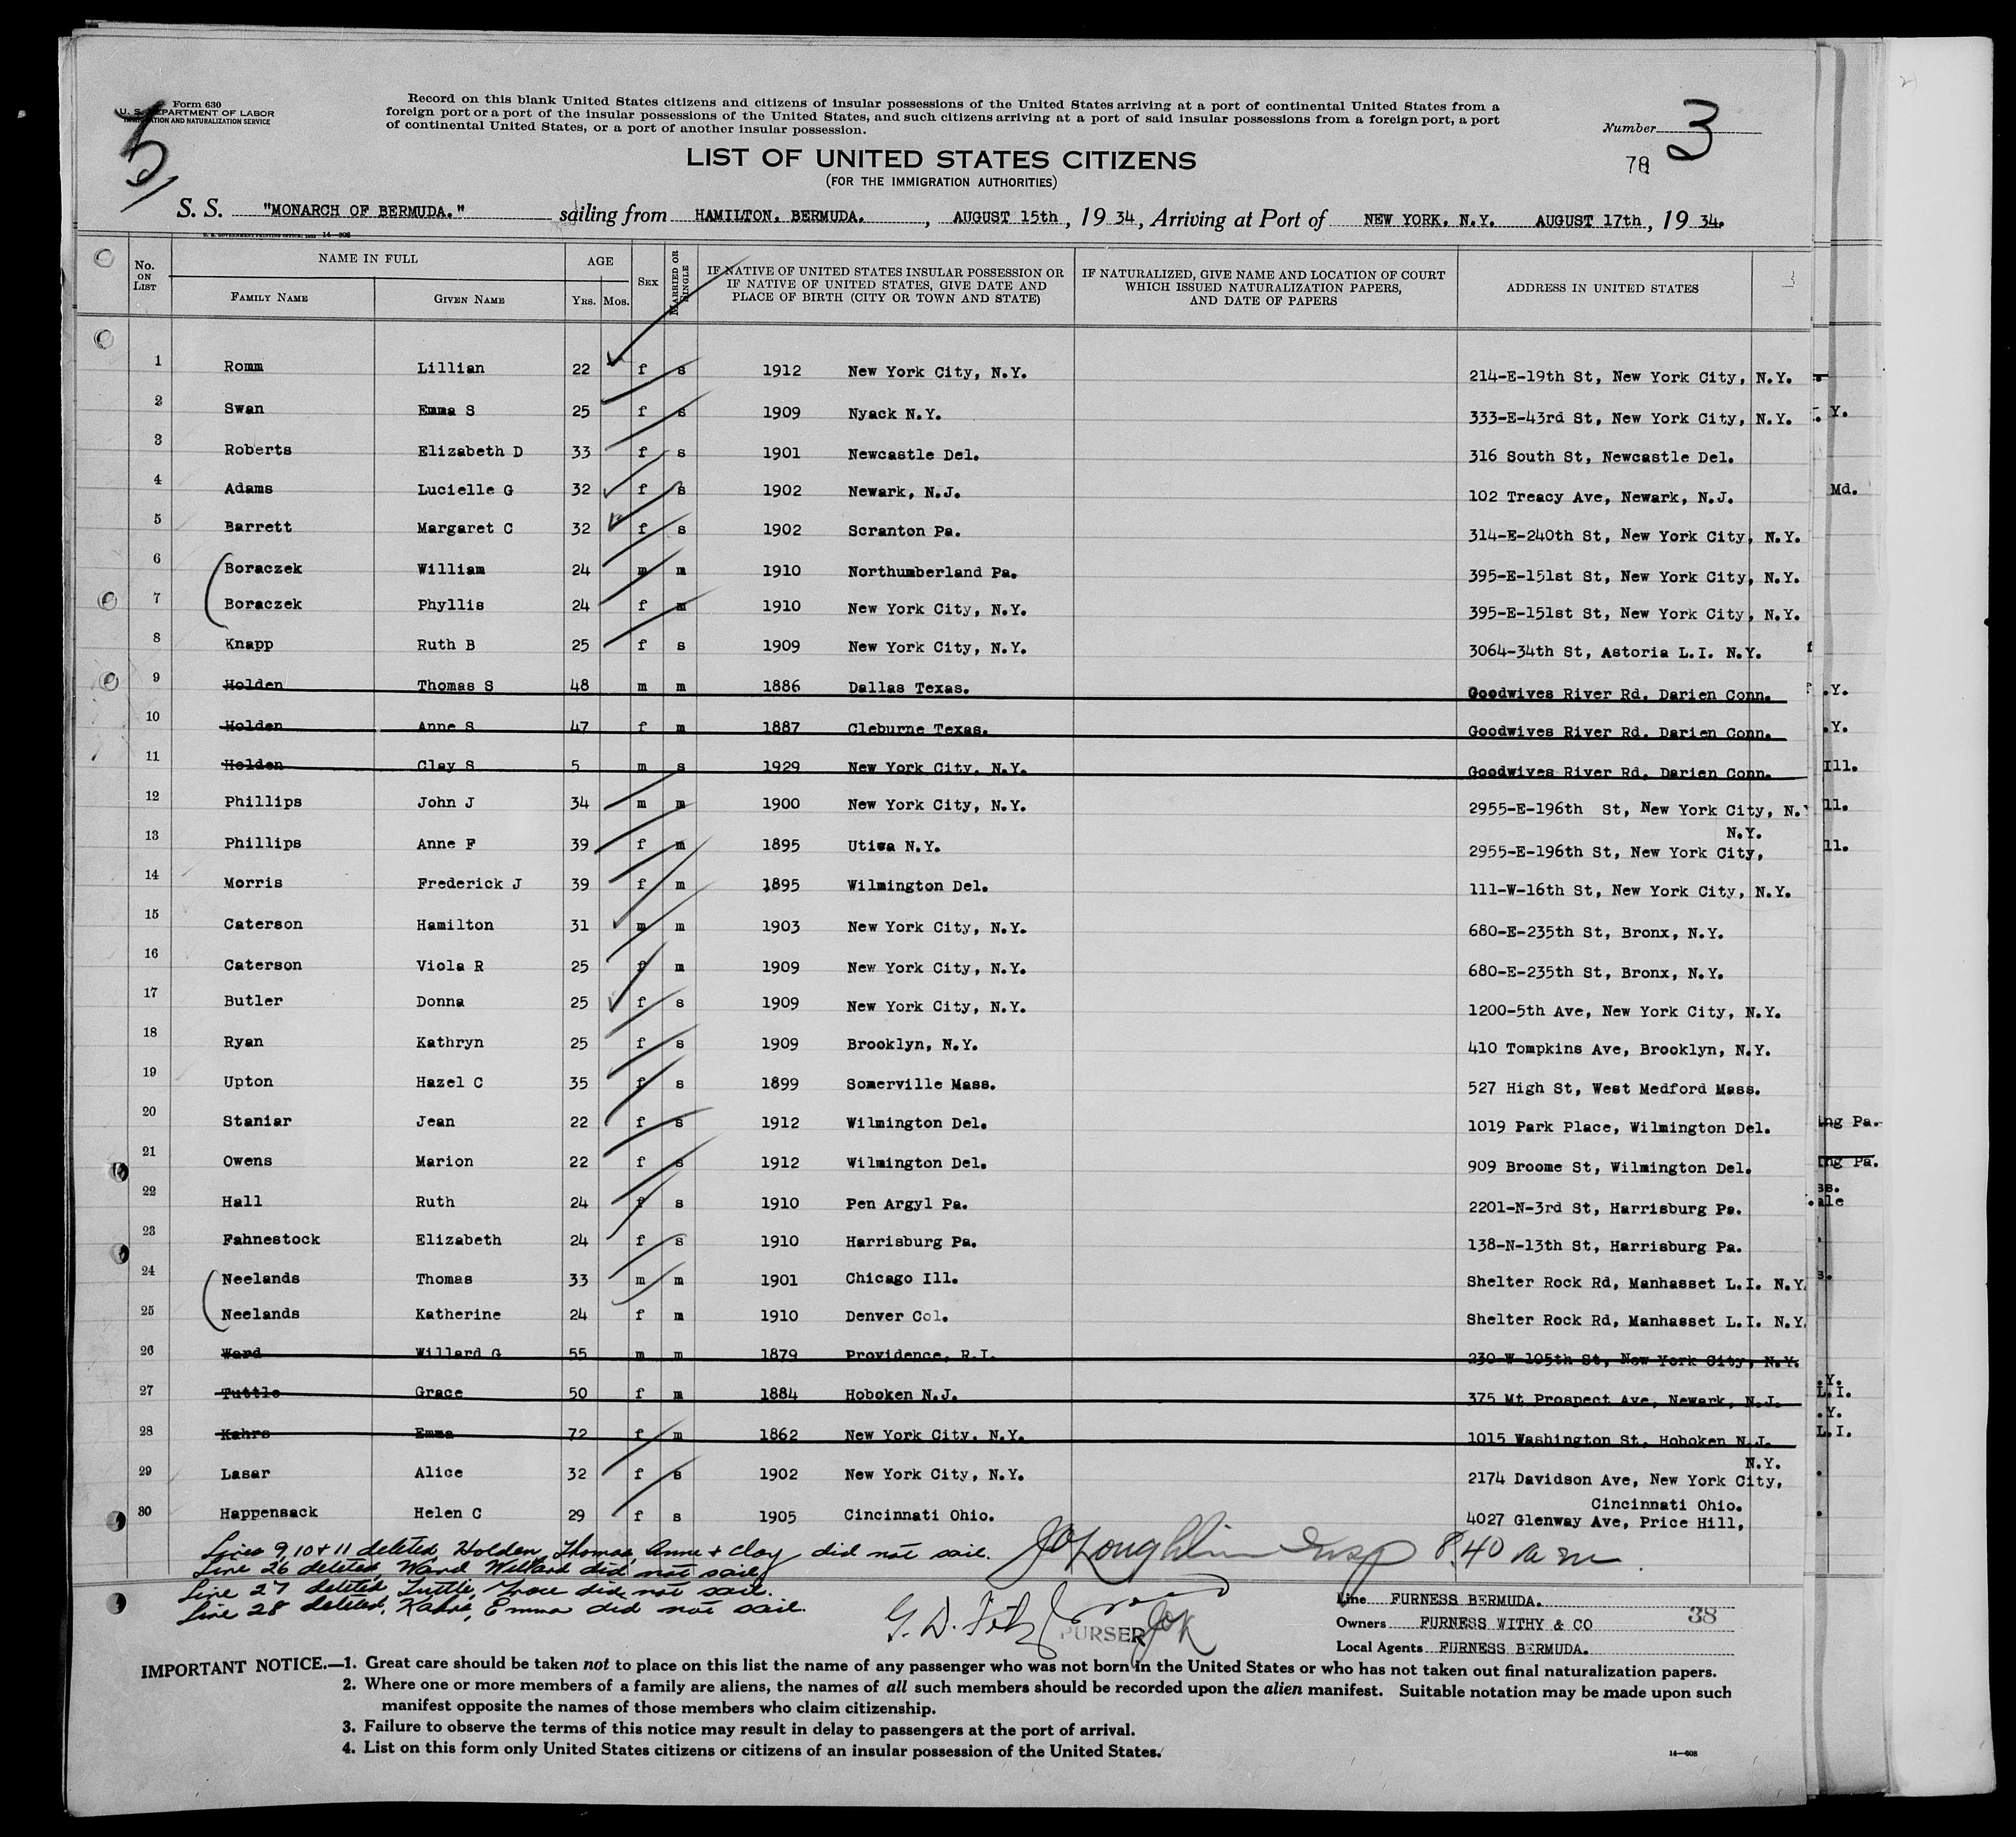 Form 630
U. S. DEPARTMENT OF LABOR
IMMIGRATION AND NATURALIZATION SERVICE
5
Record on this blank United States citizens and citizens of insular possessions of the United States arriving at a port of continental United States from a
foreign port or a port of the insular possessions of the United States, and such citizens arriving at a port of said insular possessions from a foreign port, a port
of continental United States, or a port of another insular possession.
Number 3
LIST OF UNITED STATES CITIZENS
(FOR THE IMMIGRATION AUTHORITIES)
S. S. "MONARCH OF BERMUDA." sailing from HAMILTON, BERMUDA. , AUGUST 15th , 19 34, Arriving at Port of NEW YORK, N.Y. AUGUST 17th , 19 34.
No. ON LIST NAME IN FULL FAMILY NAME GIVEN NAME AGE YRS. MOS. SEX MARRIED OR SINGLE IF NATIVE OF UNITED STATES INSULAR POSSESSION OR IF NATIVE OF UNITED STATES, GIVE DATE AND PLACE OF BIRTH (CITY OR TOWN AND STATE) IF NATURALIZED, GIVE NAME AND LOCATION OF COURT WHICH ISSUED NATURALIZATION PAPERS, AND DATE OF PAPERS ADDRESS IN UNITED STATES
1 Romm Lillian 22 f s 1912 New York City, N.Y. 214-E-19th St, New York City, N.Y.
2 Swan Emma S 25 f s 1909 Nyack N.Y. 333-E-43rd St, New York City, N.Y.
3 Roberts Elizabeth D 33 f s 1901 Newcastle Del. 316 South St, Newcastle Del.
4 Adams Lucielle G 32 f s 1902 Newark, N.J. 102 Treacy Ave, Newark, N.J.
5 Barrett Margaret C 32 f s 1902 Scranton Pa. 314-E-240th St, New York City, N.Y.
6 Boraczek William 24 m m 1910 Northumberland Pa. 395-E-151st St, New York City, N.Y.
7 Boraczek Phyllis 24 f m 1910 New York City, N.Y. 395-E-151st St, New York City, N.Y.
8 Knapp Ruth B 25 f s 1909 New York City, N.Y. 3064-34th St, Astoria L.I. N.Y.
9 Holden Thomas S 48 m m 1886 Dallas Texas. Goodwives River Rd. Darien Conn.
10 Holden Anne S 47 f m 1887 Cleburne Texas. Goodwives River Rd. Darien Conn.
11 Holden Clay S 5 m s 1929 New York City, N.Y. Goodwives River Rd, Darien Conn.
12 Phillips John J 34 m m 1900 New York City, N.Y. 2955-E-196th St, New York City, N.
13 Phillips Anne F 39 f m 1895 Utica N.Y. 2955-E-196th St, New York City, N.Y.
14 Morris Frederick J 39 f m 1895 Wilmington Del. 111-W-16th St, New York City, N.Y.
15 Caterson Hamilton 31 m m 1903 New York City, N.Y. 680-E-235th St, Bronx, N.Y.
16 Caterson Viola R 25 f m 1909 New York City, N.Y. 680-E-235th St, Bronx, N.Y.
17 Butler Donna 25 f s 1909 New York City, N.Y. 1200-5th Ave, New York City, N.Y.
18 Ryan Kathryn 25 f s 1909 Brooklyn, N.Y. 410 Tompkins Ave, Brooklyn, N.Y.
19 Upton Hazel C 35 f s 1899 Somerville Mass. 527 High St, West Medford Mass.
20 Staniar Jean 22 f s 1912 Wilmington Del. 1019 Park Place, Wilmington Del.
21 Owens Marion 22 f s 1912 Wilmington Del. 909 Broome St, Wilmington Del.
22 Hall Ruth 24 f s 1910 Pen Argyl Pa. 2201-N-3rd St, Harrisburg Pa.
23 Fahnestock Elizabeth 24 f s 1910 Harrisburg Pa. 138-N-13th St, Harrisburg Pa.
24 Neelands Thomas 33 m m 1901 Chicago Ill. Shelter Rock Rd, Manhasset L.I. N.Y.
25 Neelands Katherine 24 f m 1910 Denver Col. Shelter Rock Rd, Manhasset L.I. N.Y.
26 Ward Willard G 55 m m 1879 Providence, R.I. 230-W-105th St, New York City, N.Y.
27 Tuttle Grace 50 f m 1884 Hoboken N.J. 375 Mt Prospect Ave, Newark, N.J.
28 Kahrs Emma 72 f m 1862 New York City. N.Y. 1015 Washington St, Hoboken N.J.
29 Lasar Alice 32 f s 1902 New York City, N.Y. 2174 Davidson Ave, New York City, N.Y.
30 Happensack Helen C 29 f s 1905 Cincinnati Ohio. 4027 Glenway Ave, Price Hill, Cincinnati Ohio.
Lines 9, 10 + 11 deleted, Holden, Thomas, Anne + Clay did not sail. JO Loughlin Insp 8.40 am
Line 26 deleted, Ward Willard did not sail
Line 27 deleted Tuttle, Grace did not sail.
Line 28 deleted, Kahrs, Emma did not sail.
PURSER
Line FURNESS BERMUDA.
Owners FURNESS WITHY & CO 38
Local Agents FURNESS BERMUDA.
IMPORTANT NOTICE.—1. Great care should be taken not to place on this list the name of any passenger who was not born in the United States or who has not taken out final naturalization papers.
2. Where one or more members of a family are aliens, the names of all such members should be recorded upon the alien manifest. Suitable notation may be made upon such
manifest opposite the names of those members who claim citizenship.
3. Failure to observe the terms of this notice may result in delay to passengers at the port of arrival.
4. List on this form only United States citizens or citizens of an insular possession of the United States.
14—608